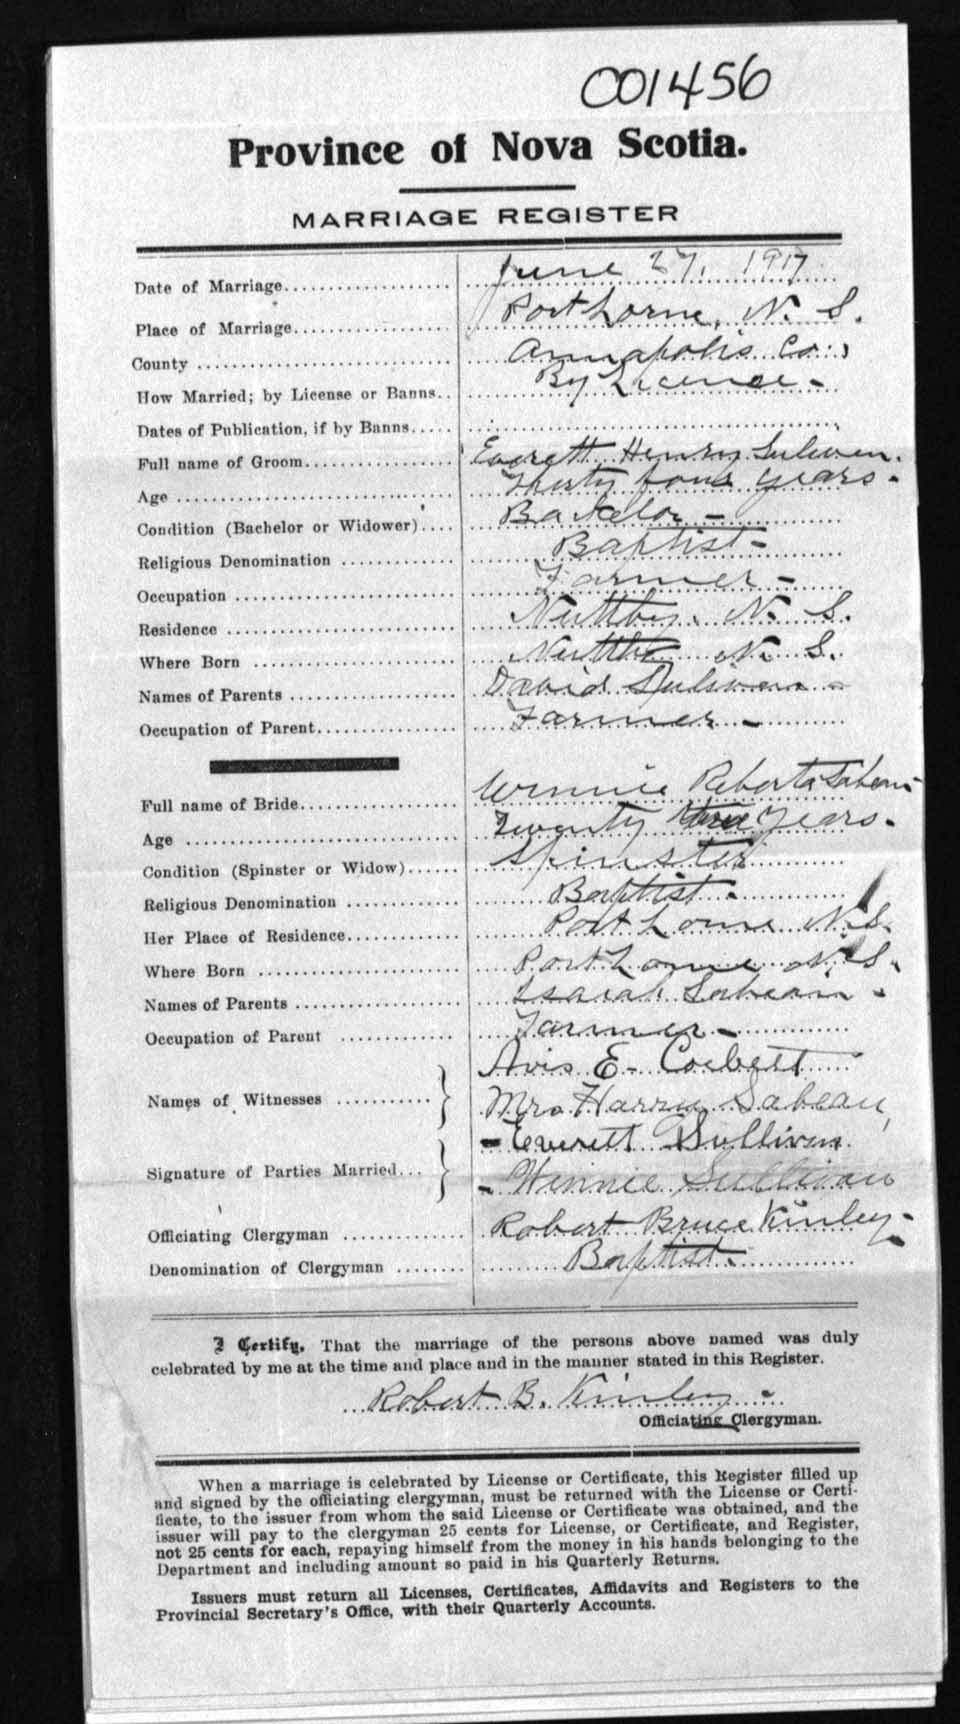 001456
Province of Nova Scotia.
MARRIAGE REGISTER
Date of Marriage.................... June 27, 1917
Place of Marriage.................... Port Lorne, N. S.
County .................... Annapolis Co.,
How Married; by License or Banns.. By License -
Dates of Publication, if by Banns.....
Full name of Groom.................... Everett Henry Suliven.
Age .................... Thirty four years -
Condition (Bachelor or Widower) .... Bachelor -
Religious Denomination .................... Baptist -
Occupation .................... Farmer -
Residence .................... Nuttby. N. S.
Where Born .................... Nuttby N. S.
Names of Parents .................... David Suliven -
Occupation of Parent.................... Farmer -
Full name of Bride.................... Winnie Roberta Sabean
Age .................... Twenty years -
Condition (Spinster or Widow)...... Spinster
Religious Denomination .................... Baptist -
Her Place of Residence.................... Port Lorne N. S.
Where Born .................... Port Lorne N. S.
Names of Parents .................... Isaiah Sabean -
Occupation of Parent .................... Farmer -
Names of Witnesses ........... } Avis E. Corbett
Mrs Harry Sabean
Signature of Parties Married... } - Everett Sullivan
- Winnie Sullivan
Officiating Clergyman .............. Robert Bruce Kinley -
Denomination of Clergyman ........ Baptist -
I Certify, That the marriage of the persons above named was duly
celebrated by me at the time and place and in the manner stated in this Register.
Robert B. Kinley -
Officiating Clergyman.
When a marriage is celebrated by License or Certificate, this Register filled up
and signed by the officiating clergyman, must be returned with the License or Certi-
ficate, to the issuer from whom the said License or Certificate was obtained, and the
issuer will pay to the clergyman 25 cents for License, or Certificate, and Register,
not 25 cents for each, repaying himself from the money in his hands belonging to the
Department and including amount so paid in his Quarterly Returns.
Issuers must return all Licenses, Certificates, Affidavits and Registers to the
Provincial Secretary's Office, with their Quarterly Accounts.